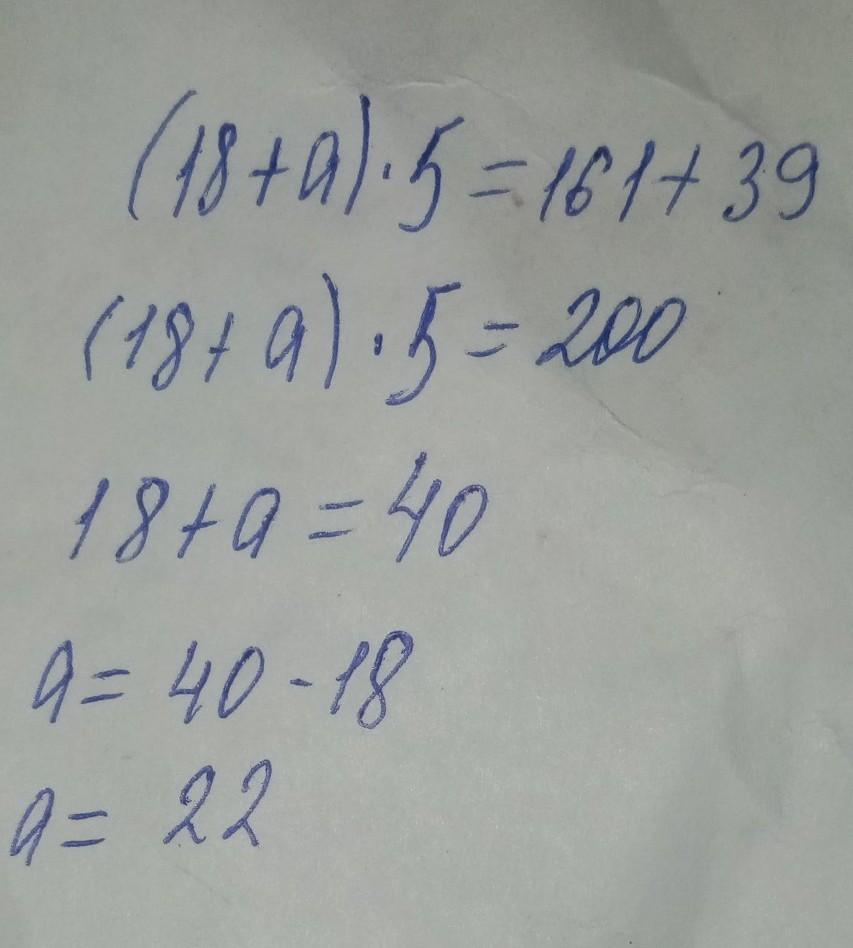 (18+a)·5=161+39
(18+a)·5=200
18+a=40
a=40-18
a=22